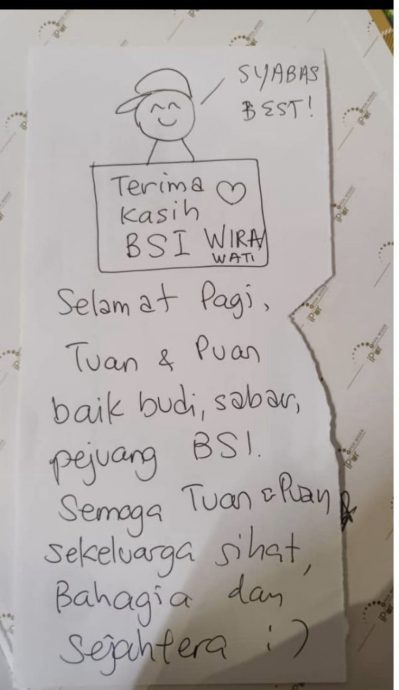 SYABAS
BEST!
Terima ♡
Kasih
BSI WIRA/
WATI
Selamat Pagi,
Tuan & Puan
baik budi, sabar,
pejuang BSI.
Semoga Tuan & Puan &
sekeluarga sihat,
Bahagia dan
Sejahtera :)